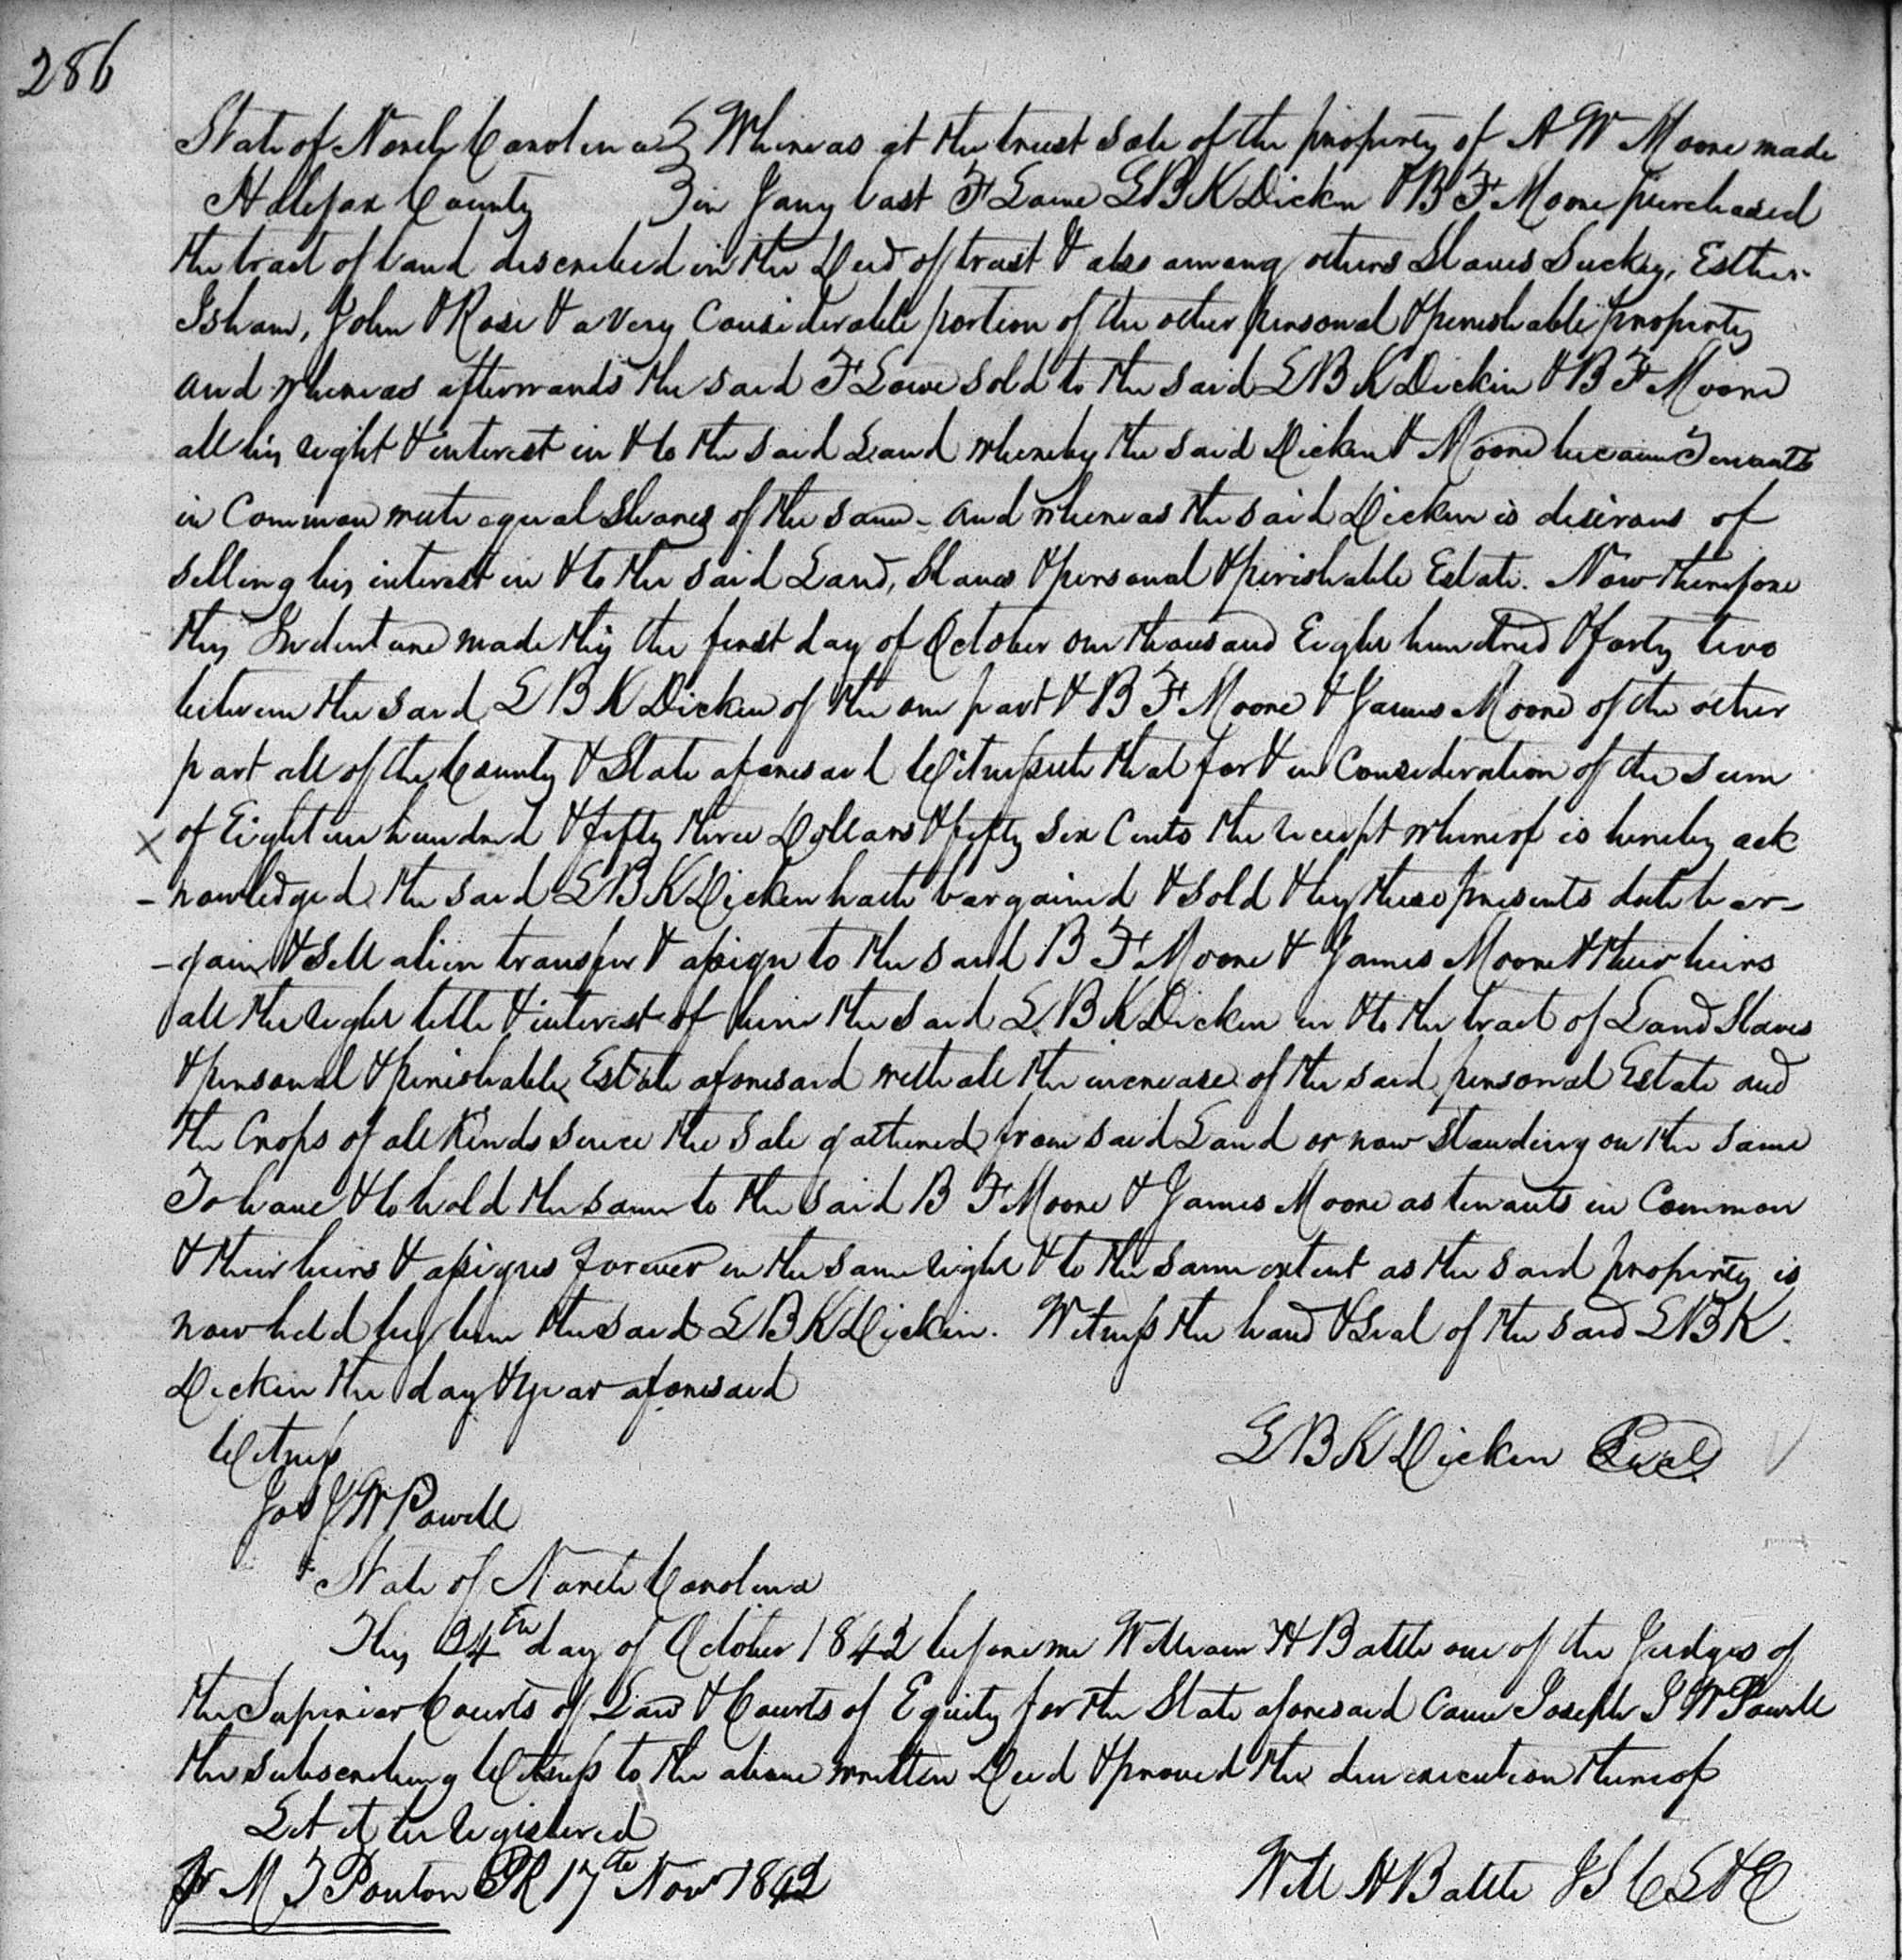 286
State of North Carolina } Whereas at the trust sale of the property of A W Moore made
Hallifax County } in Jany last F Lowe LBK Dicken & B F Moore purchased
the tract of land described in the Deed of trust & also among others Slaves Suckey, Esther
Isham, John & Rose & a very Considerable portion of the other personal & perishable property
and whereas afterwards the said F Lowe sold to the said LBK Dicken & B F Moore
all his right & interest in & to the said Land whereby the said Dicken & Moore became Tenants
in Common with equal Shares of the same - and whereas the said Dicken is desirous of
selling his interest in & to the said Land, Slaves & personal & perishable Estate. Now therefore
this Indenture made this the first day of October one thousand Eight hundred & forty two
between the said L B K Dicken of the one part & B F Moore & James Moore of the other
part all of the County & State aforesaid Witnesseth that for & in Consideration of the sum
x of Eighteen hundred & fifty three Dollars & fifty six Cents the receipt whereof is hereby ack
-nowledged the said LBK Dicken hath bargained & sold & by these presents doth bar-
-gain & sell alien transfer & assign to the said B F Moore & James Moore & their heirs
all the right title & interest of him the said L B K Dicken in & to the tract of Land Slaves
& personal & perishable Estate aforesaid with all the increase of the said personal Estate and
the Crops of all Kinds since the sale gathered from said Land or now Standing on the same
To have & to hold the same to the said B F Moore & James Moore as tenants in Common
& their heirs & assigns forever in the same right & to the same extent as the said property is
now held by him the said LBK Dicken. Witness the hand & Seal of the said LBK
Dicken the day & year aforesaid
Witness
LBK Dicken Seal
Jos J W Powell
State of North Carolina
This 24th day of October 1842 before me William H Battle one of the Judges of
the Superior Courts of Law & Courts of Equity for the State aforesaid Came Joseph J W Powell
the subscribing Witness to the above written Deed & proved the due execution thereof
Let it be registered
Will H Battle JSCL&E
Jr M T Ponton PR 17th Nov 1842